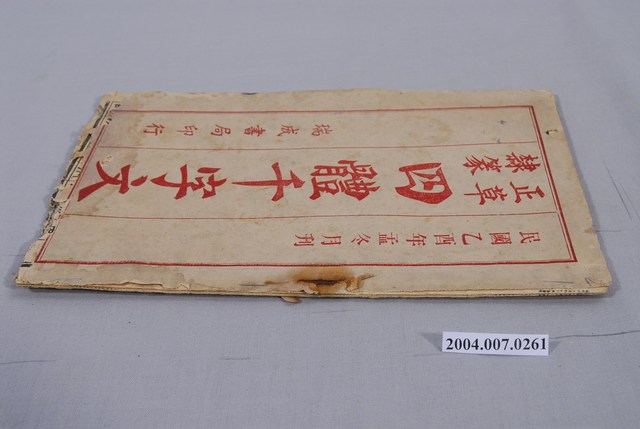 民國乙酉年孟冬月刊
正草
隸篆
四體千字文
瑞成書局印行
2004.007.0261